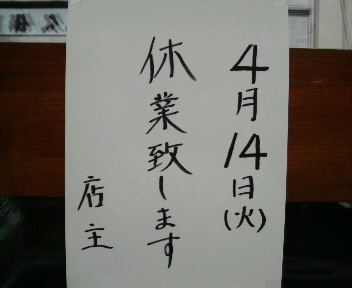 4月14日(火)
休業致します
店主